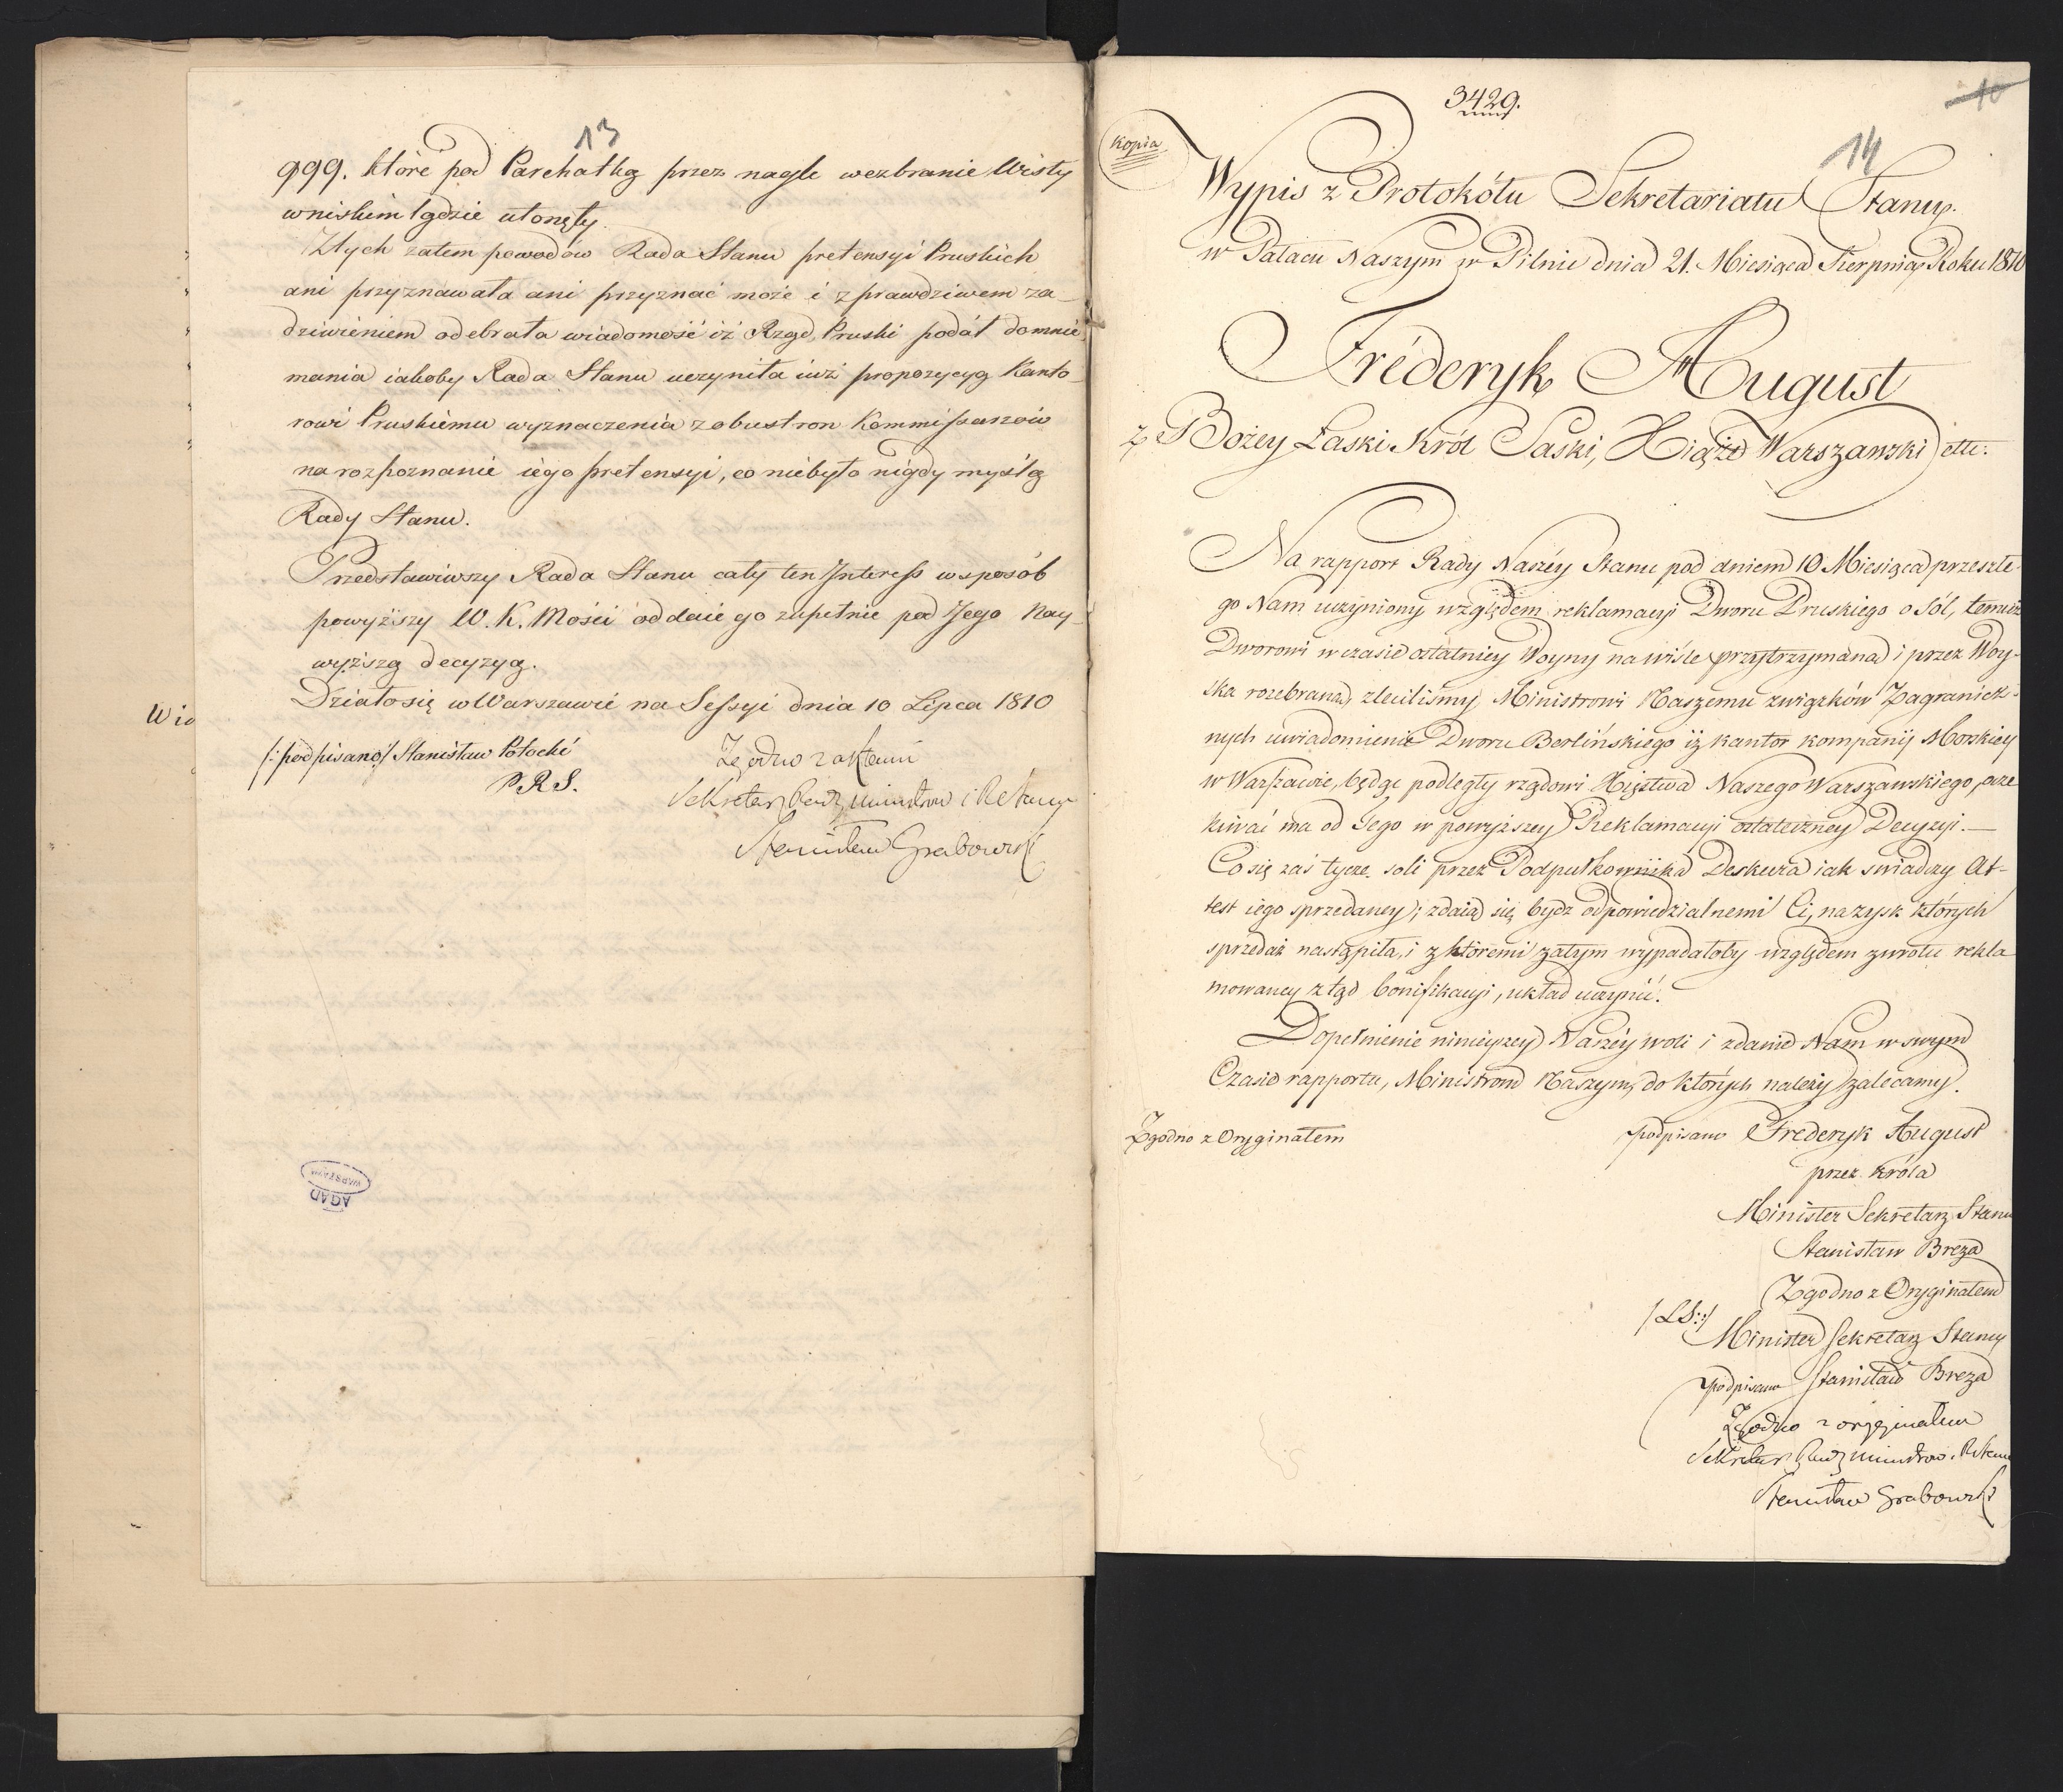 13
999. które pod Parchatką przez nagłe wezbranie Wisły
wniskim lądzie utonęły.
Ztych zatem powodów Rada Stanu pretensyi Pruskich
ani przyznawała ani przyznać może i zprawdziwem za_
dziwieniem odebrała wiadomość iż Rząd Pruski podał domnie
mania iakoby Rada Stanu uczyniła iuż propozycyą Kanto_
rowi Pruskiemu wyznaczenia zobustron Kommissarzów
na rozpoznanie iego pretensyi, co niebyło nigdy myślą
Rady Stanu.
Przedstawiwszy Rada Stanu cały ten Interess wsposób
powyższy W. K. Mości oddaie go zupełnie pod Jego Nay_
wyższą decyzyą.
Działosię w Warszawie na Sessyi dnia 10 Lipca 1810
/:podpisano:/ Stanisław Potocki
P.R.S.
Zgodno z aktami
Sekretarz Rady Ministrów i R Stanu
Stanisław Grabowski
Wio
AGAD
WARSZAWA
3429.
10
14
Kopia
Wypis z Protokółu Sekretariatu Stanu.
w Pałacu Naszym w Pilnie dnia 21. Miesiąca Sierpnia Roku 1810
Fréderyk August
z Bożey Łaski Król Saski, Xiąże Warszawski ettc:
Na rapport Rady Naszéy Stanu pod dniem 10 Miesiąca przeszłe-
go Nam uczyniony względem reklamacyi Dworu Pruskiego o Sól, temuż
Dworowi w czasie ostatniey Woyny na wiśle przytrzymaną i przez Woy-
ska rozebraną, zleciliśmy Ministrowi Naszemu związków Zagranicz-
nych uwiadomienie Dworu Berlińskiego iż kantor kompanij Morskiey
w Warszawie, będąc podległy rządowi Xięstwa Naszego Warszawskiego, ocze
kiwać ma od Jego w powyższey Reklamacyi ostateczney Decyzyi.—
Co się zaś tycze soli przez Podpułkownika Deskura iak swiadczy At-
test iego sprzedaney; zdaią się bydz odpowiedzialnemi Ci, na zysk których
sprzedaż nastąpiła, i z któremi zatym wypadałoby względem zwrotu rekla
mowaney ztąd bonifikacyi, układ uczynić.
Dopełnienie ninieyszey Naszéy woli i zdanie Nam w swym
Czasie rapportu, Ministrom Naszym, do których należy zalecamy.
Zgodno z Oryginałem
podpisano Frederyk August
przez króla
Minister Sekretarz Stanu
Stanisław Breza
Zgodno z Oryginałem
/:LS:/
Minister Sekretarz Stanu
podpisano Stanisław Breza
Zgodno z oryginałem
Sekretarz Rady Ministrow i R Stanu
Stanisław Grabowski